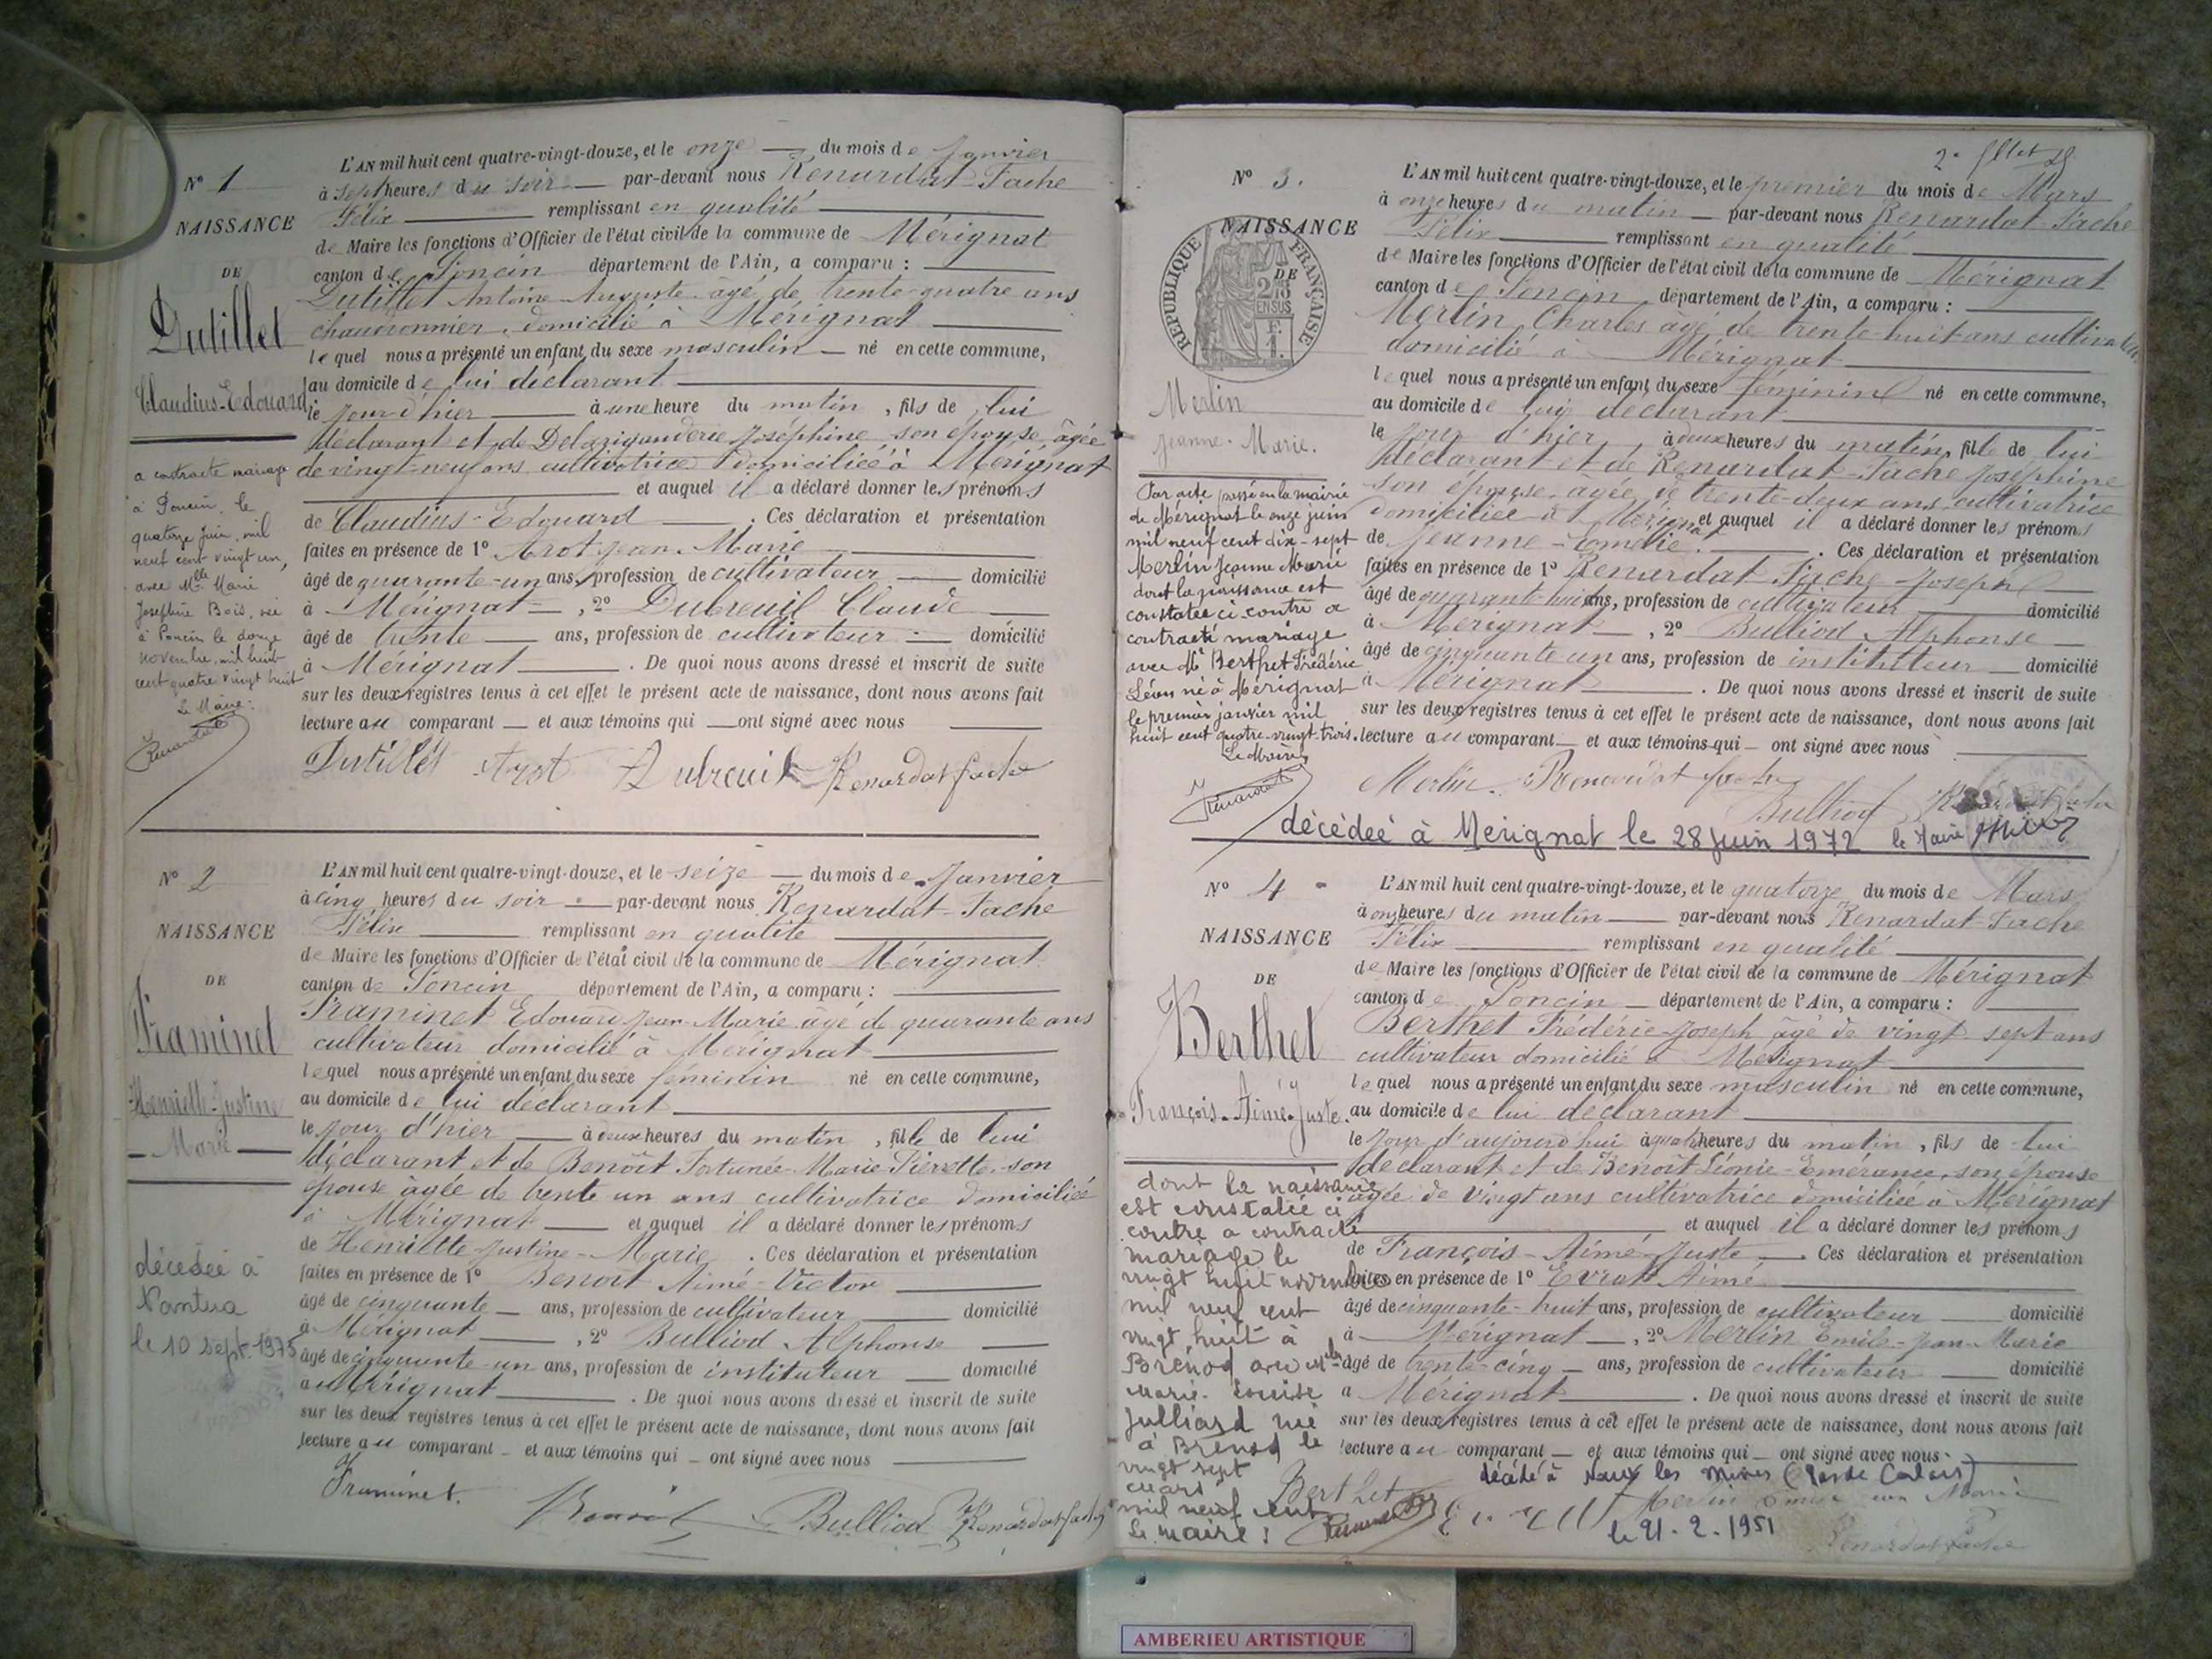 L'AN mil huit cent quatre-vingt-douze, et le onze du mois de Janvier
N° 1
à sept heures du soir par-devant nous Renardat-Fache
NAISSANCE
Félix remplissant en qualité
de Maire les fonctions d'Officier de l'état civil de la commune de Mérignat
DE
canton de Poncin département de l'Ain, a comparu :
Dutillet
Dutillet Antoine Auguste âgé de trente-quatre ans
chaudronnier domicilié à Mérignat
lequel nous a présenté un enfant du sexe masculin né en cette commune,
au domicile de lui déclarant
Claudius-Edouard
le jour d'hier à une heure du matin, fils de lui
déclarant et de Joséphine son épouse, âgée
de vingt-neuf ans cultivatrice domiciliée à Mérignat
et auquel il a déclaré donner les prénoms
de Claudius-Edouard. Ces déclaration et présentation
faites en présence de 1° Arot Jean Marie
âgé de quarante-un ans, profession de cultivateur domicilié
à Mérignat, 2° Dubreuil Claude
âgé de trente ans, profession de cultivateur domicilié
à Mérignat. De quoi nous avons dressé et inscrit de suite
sur les deux registres tenus à cet effet le présent acte de naissance, dont nous avons fait
lecture au comparant et aux témoins qui ont signé avec nous
Dutillet Arot Dubreuil Renardat fache
a contracté mariage
à Poncin, le
quatorze juin, mil
neuf cent vingt un,
avec Mlle Marie
Joséphine Bois, née
à Poncin le douze
novembre mil huit
cent quatre vingt huit
Le Maire :
Renardat
L'AN mil huit cent quatre-vingt-douze, et le seize du mois de Janvier
N° 2
à cinq heures du soir par-devant nous Renardat-Fache
NAISSANCE
Félix remplissant en qualité
de Maire les fonctions d'Officier de l'état civil de la commune de Mérignat
DE
canton de Poncin département de l'Ain, a comparu :
Framinet
Framinet Edouard Jean-Marie âgé de quarante ans
cultivateur domicilié à Mérignat
lequel nous a présenté un enfant du sexe féminin né en cette commune,
Henriette-Justine
Marie
au domicile de lui déclarant
le jour d'hier à deux heures du matin, fille de lui
déclarant et de Benoît Fortunée-Marie-Pierrette son
épouse âgée de trente un ans cultivatrice domiciliée
à Mérignat et auquel il a déclaré donner les prénoms
de Henriette-Justine-Marie. Ces déclaration et présentation
faites en présence de 1° Benoît Aimé-Victor
âgé de cinquante ans, profession de cultivateur domicilié
à Mérignat, 2° Bulliod Alphonse
âgé de cinquante-un ans, profession de instituteur domicilié
à Mérignat. De quoi nous avons dressé et inscrit de suite
sur les deux registres tenus à cet effet le présent acte de naissance, dont nous avons fait
lecture au comparant et aux témoins qui ont signé avec nous
Framinet. Benoit Bulliod Renardat fache
décédée à
Nantua
le 10 sept. 1975
2e fllet
L'AN mil huit cent quatre-vingt-douze, et le premier du mois de Mars
N° 3.
à onze heures du matin par-devant nous Renardat-Fache
NAISSANCE
Félix remplissant en qualité
de Maire les fonctions d'Officier de l'état civil de la commune de Mérignat
DE
REPUBLIQUE FRANÇAISE
EN SUS
canton de Poncin, département de l'Ain, a comparu :
Merlin Charles âgé de trente-huit ans cultivateur
domicilié à Mérignat
lequel nous a présenté un enfant du sexe féminin né en cette commune,
Merlin
au domicile de lui déclarant
Jeanne-Marie.
le jour d'hier, à deux heures du matin, fille de lui
déclarant et de Renardat-Fache Joséphine
son épouse, âgée de trente-deux ans cultivatrice
domiciliée à Mérignat et auquel il a déclaré donner les prénoms
de Jeanne-. Ces déclaration et présentation
faites en présence de 1° Renardat Fache-Joseph
âgé de quarante-huit ans, profession de cultivateur domicilié
à Mérignat, 2° Bulliod Alphonse
âgé de cinquante un ans, profession de instituteur domicilié
à Mérignat. De quoi nous avons dressé et inscrit de suite
sur les deux registres tenus à cet effet le présent acte de naissance, dont nous avons fait
lecture au comparant et aux témoins qui ont signé avec nous
Merlin. Renardat fache
Bulliod Renardat fache
Par acte passé en la mairie
de Mérignat le onze juin
mil neuf cent dix-sept
Merlin Jeanne Marie
dont la naissance est
constatée ci-contre a
contracté mariage
avec Mr Berthet Frédéric
Léon né à Mérignat
le premier janvier mil
huit cent quatre-vingt-trois.
Le Maire
Renardat
décédée à Mérignat le 28 Juin 1972 le Maire
L'AN mil huit cent quatre-vingt-douze, et le quatorze du mois de Mars
N° 4
à onze heures du matin par-devant nous Renardat-Fache
NAISSANCE
Félix remplissant en qualité
de Maire les fonctions d'Officier de l'état civil de la commune de Mérignat
DE
canton de Poncin département de l'Ain, a comparu :
Berthet
Berthet Frédéric-Joseph âgé de vingt-sept ans
cultivateur domicilié à Mérignat
lequel nous a présenté un enfant du sexe masculin né en cette commune,
François-Aimé-Juste.
au domicile de lui déclarant
le jour d'aujourd'hui à quatre heures du matin, fils de lui
déclarant et de Benoît Léonie-Emérance, son épouse
âgée de vingt ans cultivatrice domiciliée à Mérignat
et auquel il a déclaré donner les prénoms
de François-Aimé-Juste. Ces déclaration et présentation
faites en présence de 1° Evrat Aimé
âgé de cinquante-huit ans, profession de cultivateur domicilié
à Mérignat, 2° Merlin Emile-Jean-Marie
âgé de trente-cinq ans, profession de cultivateur domicilié
à Mérignat. De quoi nous avons dressé et inscrit de suite
sur les deux registres tenus à cet effet le présent acte de naissance, dont nous avons fait
lecture au comparant et aux témoins qui ont signé avec nous
décédé à Nœux les Mines (Pas de Calais)
le 21-2-1951
Berthet Merlin Emile Jean Marie
Renardat fache
dont la naissance
est constatée ci
contre a contracté
mariage le
vingt huit novembre
mil neuf cent
vingt huit à
Brénod avec Mlle
Marie-Louise
Julliard née
à Brénod le
vingt sept
mars
mil neuf cent
Le maire :
AMBERIEU ARTISTIQUE